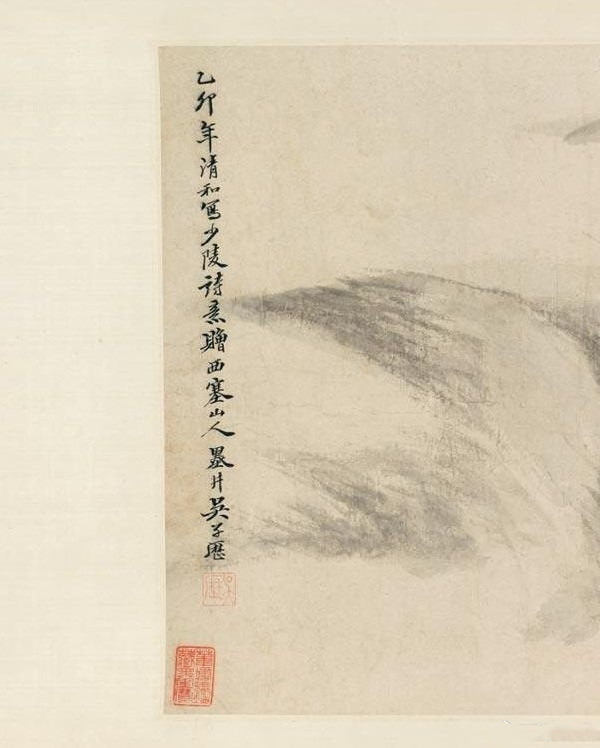 乙卯年清和寫少陵詩意贈西塞山人墨井吳子歷